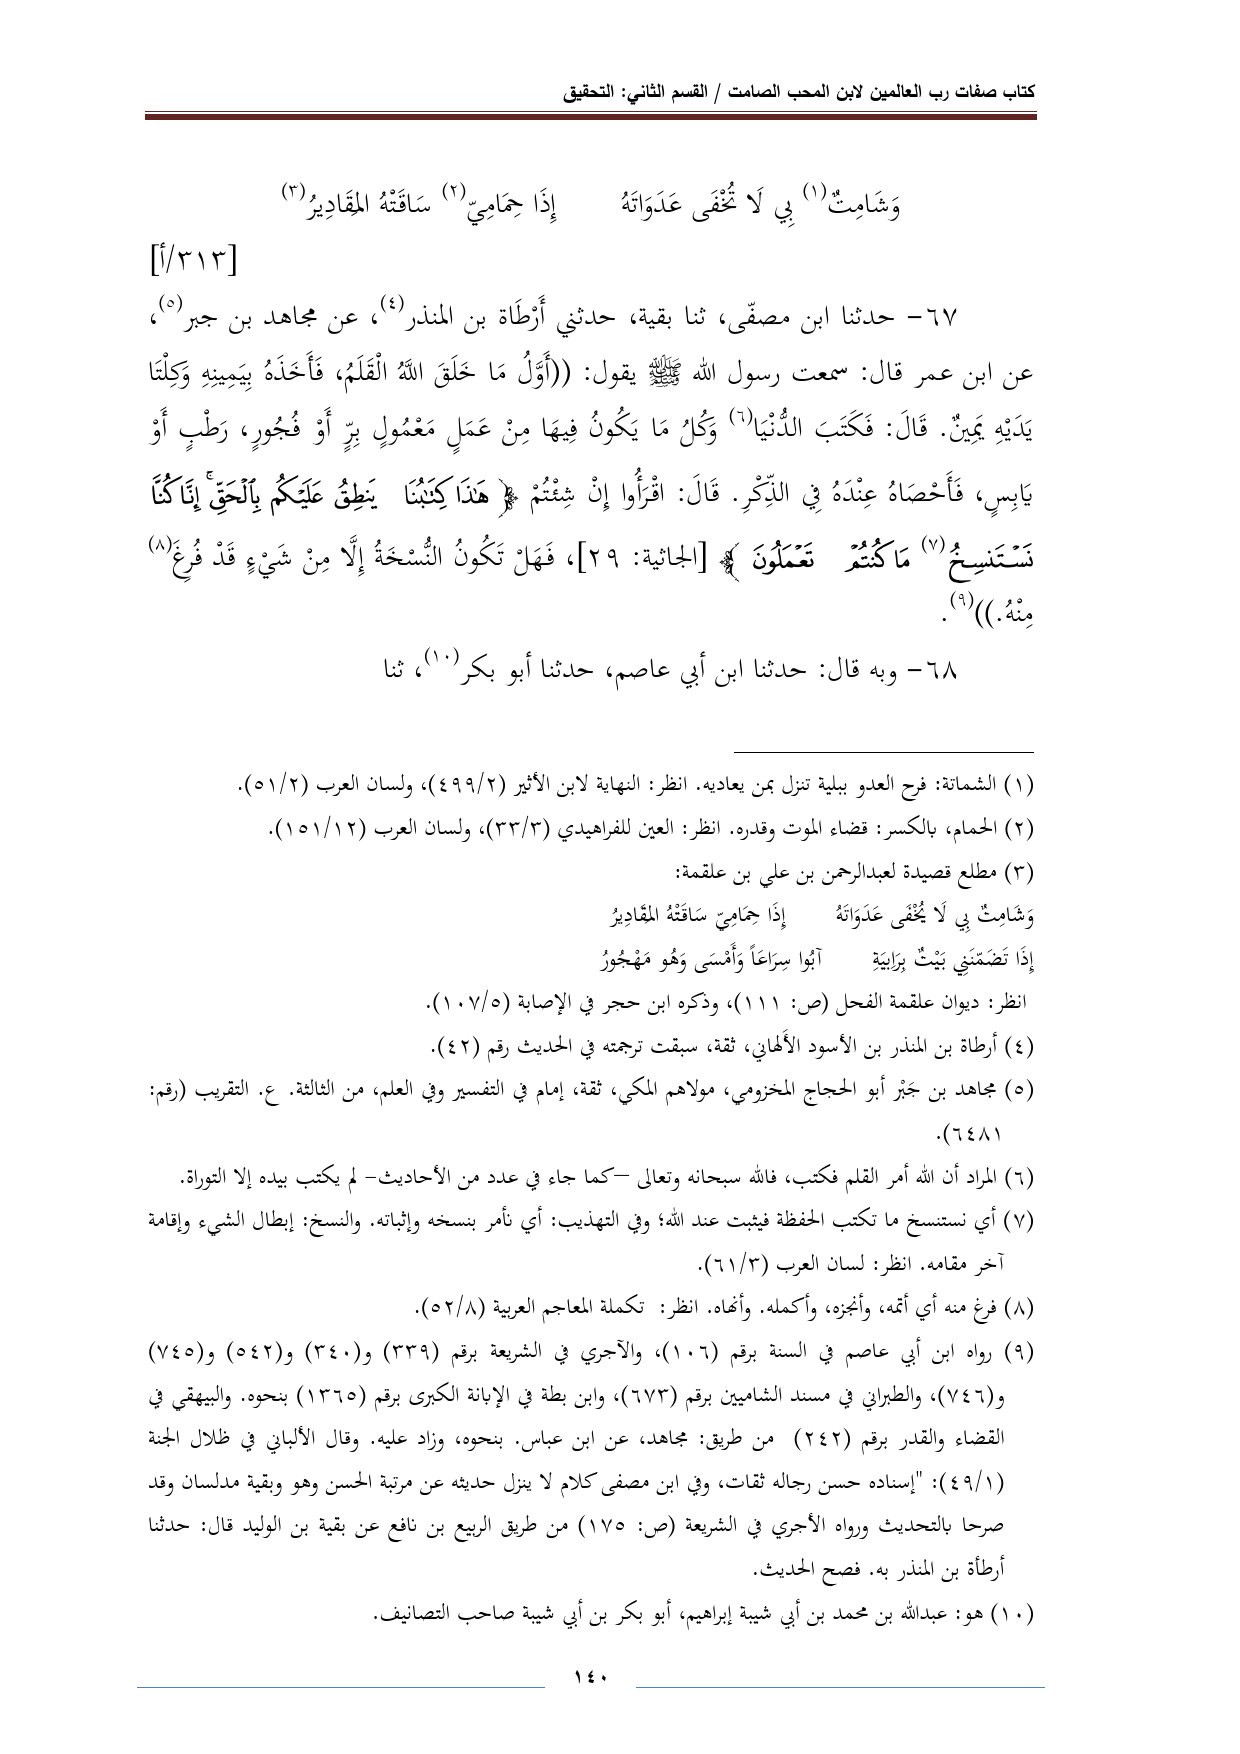 كتاب صفات رب العالمين لابن المحب الصامت / القسم الثاني: التحقيق
وَشَامِتٌ(١) بِي لَا تُخْفَى عَدَوَاتَهُ إِذَا حِمَامِيّ(٢) سَاقَتْهُ المِقَادِيرُ(٣)
[٣١٣/أ]
٦٧- حدثنا ابن مصفّى، ثنا بقية، حدثني أَرْطَاة بن المنذر(٤)، عن مجاهد بن جبر(٥)،
عن ابن عمر قال: سمعت رسول الله ﷺ يقول: ((أَوَّلُ مَا خَلَقَ اللَّهُ الْقَلَمُ، فَأَخَذَهُ بِيَمِينِهِ وَكِلْتَا
يَدَيْهِ يَمِينٌ. قَالَ: فَكَتَبَ الدُّنْيَا(٦) وَكُلُ مَا يَكُونُ فِيهَا مِنْ عَمَلٍ مَعْمُولٍ بِرٍّ أَوْ فُجُورٍ، رَطْبٍ أَوْ
يَابِسٍ، فَأَحْصَاهُ عِنْدَهُ فِي الذِّكْرِ. قَالَ: اقْرَأُوا إِنْ شِئْتُمْ ﴿ هَٰذَا كِتَٰبُنَا يَنطِقُ عَلَيْكُم بِٱلْحَقِّۚ إِنَّا كُنَّا
نَسْتَنسِخُ(٧) مَا كُنتُمْ تَعْمَلُونَ ﴾ [الجاثية: ٢٩]، فَهَلْ تَكُونُ النُّسْخَةُ إِلَّا مِنْ شَيْءٍ قَدْ فُرِغَ(٨)
مِنْهُ.))(٩).
٦٨- وبه قال: حدثنا ابن أبي عاصم، حدثنا أبو بكر(١٠)، ثنا
(١) الشماتة: فرح العدو ببلية تنزل بمن يعاديه. انظر: النهاية لابن الأثير (٤٩٩/٢)، ولسان العرب (٥١/٢).
(٢) الحمام، بالكسر: قضاء الموت وقدره. انظر: العين للفراهيدي (٣٣/٣)، ولسان العرب (١٥١/١٢).
(٣) مطلع قصيدة لعبدالرحمن بن علي بن علقمة:
وَشَامِتٌ بِي لَا يُخْفَى عَدَوَاتَهُ إِذَا حِمَامِيّ سَاقَتْهُ المِقَادِيرُ
إِذَا تَضَمّنَنِي بَيْتٌ بِرَابِيَةِ آبُوا سِرَاعَاً وَأَمْسَى وَهُو مَهْجُورُ
انظر: ديوان علقمة الفحل (ص: ١١١)، وذكره ابن حجر في الإصابة (١٠٧/٥).
(٤) أرطاة بن المنذر بن الأسود الأَلهاني، ثقة، سبقت ترجمته في الحديث رقم (٤٢).
(٥) مجاهد بن جَبْر أبو الحجاج المخزومي، مولاهم المكي، ثقة، إمام في التفسير وفي العلم، من الثالثة. ع. التقريب (رقم:
٦٤٨١).
(٦) المراد أن الله أمر القلم فكتب، فالله سبحانه وتعالى –كما جاء في عدد من الأحاديث- لم يكتب بيده إلا التوراة.
(٧) أي نستنسخ ما تكتب الحفظة فيثبت عند الله؛ وفي التهذيب: أي نأمر بنسخه وإثباته. والنسخ: إبطال الشيء وإقامة
آخر مقامه. انظر: لسان العرب (٦١/٣).
(٨) فرغ منه أي أتمه، وأنجزه، وأكمله. وأنهاه. انظر: تكملة المعاجم العربية (٥٢/٨).
(٩) رواه ابن أبي عاصم في السنة برقم (١٠٦)، والآجري في الشريعة برقم (٣٣٩) و(٣٤٠) و(٥٤٢) و(٧٤٥)
و(٧٤٦)، والطبراني في مسند الشاميين برقم (٦٧٣)، وابن بطة في الإبانة الكبرى برقم (١٣٦٥) بنحوه. والبيهقي في
القضاء والقدر برقم (٢٤٢) من طريق: مجاهد، عن ابن عباس. بنحوه، وزاد عليه. وقال الألباني في ظلال الجنة
(٤٩/١): "إسناده حسن رجاله ثقات، وفي ابن مصفى كلام لا ينزل حديثه عن مرتبة الحسن وهو وبقية مدلسان وقد
صرحا بالتحديث ورواه الأجري في الشريعة (ص: ١٧٥) من طريق الربيع بن نافع عن بقية بن الوليد قال: حدثنا
أرطأة بن المنذر به. فصح الحديث.
(١٠) هو: عبدالله بن محمد بن أبي شيبة إبراهيم، أبو بكر بن أبي شيبة صاحب التصانيف.
١٤٠